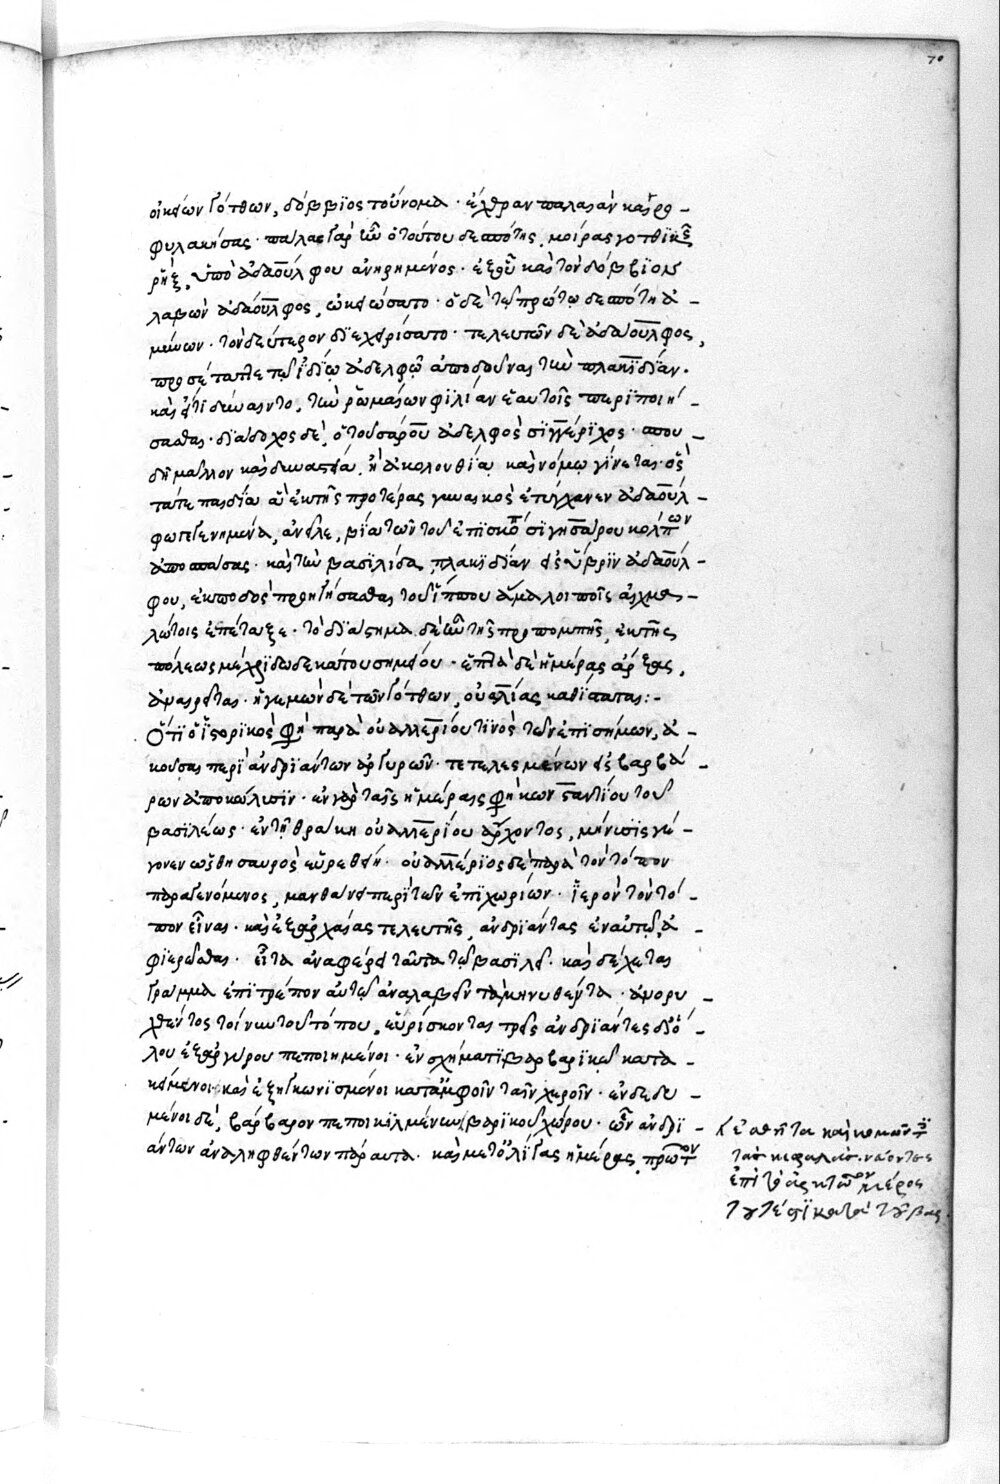 70
οἰκείων Γότθων, δόββιος τοὔνομα · ἔχθραν παλαιὰν καιρο-
φυλακήσας · πάλαι γὰρ ἦν ὁ τούτου δεσπότης, μοίρας γοτθικῆς
ῥὴξ, ὑπὸ ἀδαούλφου ἀνῃρημένος · ἐξ οὗ καὶ τὸν δόββιον
λαβὼν ἀδαοῦλφος, ὠκειώσατο · ὁ δὲ τῷ πρώτῳ δεσπότῃ ἀ-
μύνων · τὸν δεύτερον διεχειρίσατο · τελευτῶν δὲ ἀδαοῦλφος,
προσέταττε τῷ ἰδίῳ ἀδελφῷ ἀποδοῦναι τὴν πλακιδίαν ·
καὶ εἴ τι δύναιντο, τὴν ῥωμαίων φιλίαν ἑαυτοῖς περιποιή-
σασθαι · διάδοχος δὲ, ὁ τοῦ σάρου ἀδελφὸς σιγγέριχος · σπου-
δῇ μᾶλλον καὶ δυναστείᾳ, ἢ ἀκολουθίᾳ καὶ νόμῳ γίνεται · ὃς
τά τε παιδία ἃ ἐκ τῆς προτέρας γυναικὸς ἐτύγχανεν ἀδαούλ-
φῳ γεγενημένα, ἀνεῖλε, βίᾳ τῶν τοῦ ἐπισκόπου σιγησάρου κόλπων
ἀποσπάσας · καὶ τὴν βασιλίδα πλακιδίαν εἰς ὕβριν ἀδαούλ-
φου, ἐκ ποδὸς προηγήσασθαι τοῦ ἵππου ἅμα λοιποῖς αἰχμα-
λώτοις ἐπέταξε · τὸ διάστημα δὲ ἦν τῆς προπομπῆς, ἐκ τῆς
πόλεως μέχρι δωδεκάτου σημείου · ἑπτὰ δὲ ἡμέρας ἄρξας,
ἀναιρεῖται · ἡγεμὼν δὲ τῶν Γότθων, οὐαλίας καθίσταται :-
Ὅτι ὁ ἱστορικὸς φησὶ παρὰ οὐαλλερίου τινὸς τῶν ἐπισήμων, ἀ-
κοῦσαι περὶ ἀνδριάντων ἀργυρῶν · τετελεσμένων εἰς βαρβά-
ρων ἀποκώλυσιν · ἐν γὰρ ταῖς ἡμέραις φησὶ κωνσταντίου τοῦ
βασιλέως · ἐν τῇ θρᾴκῃ οὐαλλερίου ἄρχοντος, μήνυσις γέ-
γονεν ὡς θησαυρὸς εὑρεθείη · οὐαλλέριος δὲ παρὰ τὸν τόπον
παραγενόμενος, μανθάνει περὶ τῶν ἐπιχωρίων · ἱερὸν τὸν τό-
πον εἶναι · καὶ ἐξ ἀρχαίας τελετῆς, ἀνδριάντας ἐν αὐτῷ ἀ-
φιερῶσθαι · εἶτα ἀναφέρει ταῦτα τῷ βασιλεῖ · καὶ δέχεται
γράμμα ἐπιτρέπον αὐτῷ ἀναλαβεῖν τὰ μηνυθέντα · ἀνορυ-
χθέντος τοίνυν τοῦ τόπου, εὑρίσκονται τρεῖς ἀνδριάντες δι' ὅ-
λου ἐξ ἀργύρου πεποιημένοι · ἐν σχήματι βαρβαρικῷ κατα-
κείμενοι · καὶ ἐξηγκωνισμένοι κατ' ἀμφοῖν ταῖν χεροῖν · ἐνδεδυ-
μένοι δὲ, βάρβαρον πεποικιλμένην βαρικοῦ χώρου · ὧν ἀνδρι-
άντων ἀναληφθέντων παραυτα · καὶ μετ' ὀλίγας ἡμέρας, πρῶτον
ἐσθῆτα καὶ κομῶντες
τὰς κεφαλάς · νεύοντες
ἐπὶ τὸ ἀρκτῶον μέρος
τουτέστι κατὰ τοῦ βαρ